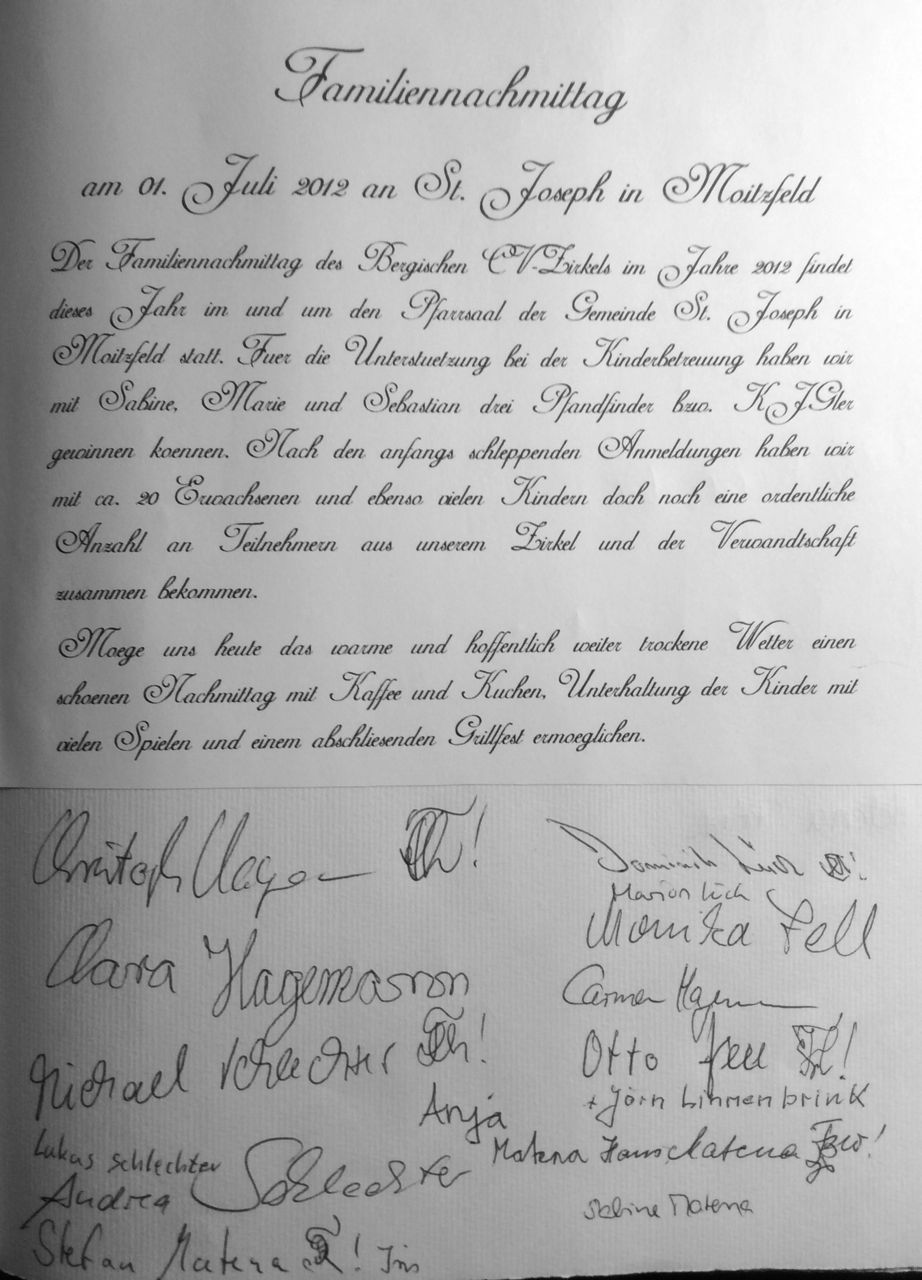 Familiennachmittag
am 01. Juli 2012 an St. Joseph in Moitzfeld
Der Familiennachmittag des Bergischen CV-Zirkels im Jahre 2012 findet
dieses Jahr im und um den Pfarrsaal der Gemeinde St. Joseph in
Moitzfeld statt. Fuer die Unterstuetzung bei der Kinderbetreuung haben wir
mit Sabine, Marie und Sebastian drei Pfandfinder bzw. KJGler
gewinnen koennen. Nach den anfangs schleppenden Anmeldungen haben wir
mit ca. 20 Erwachsenen und ebenso vielen Kindern doch noch eine ordentliche
Anzahl an Teilnehmern aus unserem Zirkel und der Verwandtschaft
zusammen bekommen.
Moege uns heute das warme und hoffentlich weiter trockene Wetter einen
schoenen Nachmittag mit Kaffee und Kuchen, Unterhaltung der Kinder mit
vielen Spielen und einem abschliesenden Grillfest ermoeglichen.
Christoph
Clara Hagemann
Michael Schlechter
Anja
Lukas Schlechter
Andrea Schlechter
Stefan Matena
Dominik
Marion
Monika Fell
Carmen
Otto
+ Jörn Linnenbrink
Matena Hans Matena
Sabine Matena